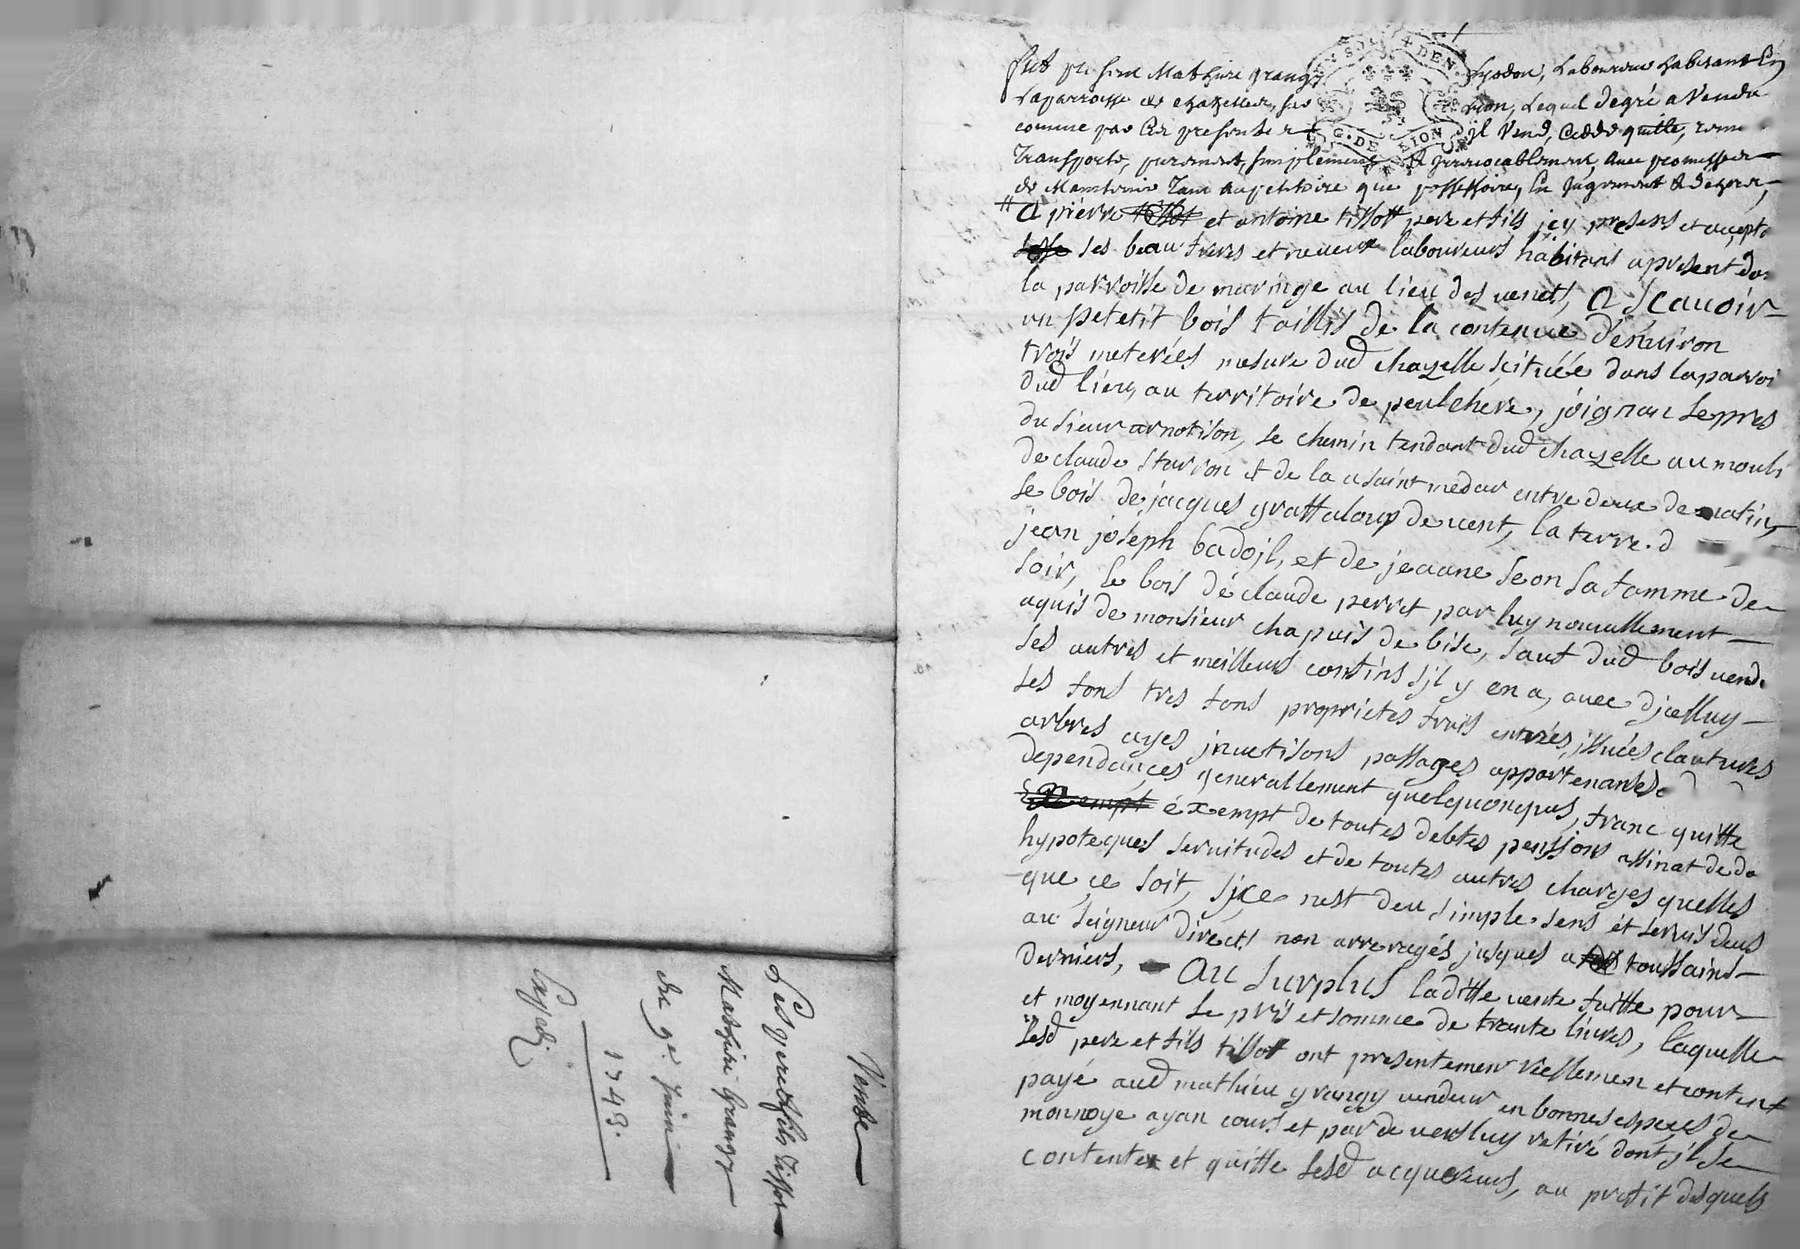 Vente
Les pere & fils Tissot
Mathieu Grangy
du 9e. Juin
1743.
fut pnt sieur Mathieu grangy Lyodon, Laboureur habitant En
la parroisse de chazelles, sur Lion, Lequel degré a Vendu
comme par Ces presentes il Vend, Cedde quitte, remet
Transporte, purement, simplement & jrrevocablement, avec promesse
de Maintenir Tant au petitoire que possessoire, En jugement & dehors,
A pierre et antoine tissot pere et fils jcy presens et accept
ses beau freres et neveux laboureurs habitans apresent da
la parroisse de maringe au lieu des venets, A Scavoir
un petetit bois taillis de la contenue d'environ
trois meterées mesure dud chazelle scituéé dans la parroi
dud lieu, au territoire de peulchere, joignan le pres
du sieur arnotison, le chemin tendant dud chazelle au mouli
de claude starron et de la a saint medar entre deux de matin,
le bois de jacques grattaloup de vent, la terre d
jean joseph badojl, et de jeanne seon sa famme de
soir, le bois dé claude perret par luy nouvallement
aquis de monsieur chapuis de bise, sauf dud bois vend
ses autres et meilleurs confins sjl y en a, avec djcelluy
ses fons tres fons proprietes fruis entréés, jssuées clautures
arbres ayes jnvetisons passages appartenantes
dependances generallement quelquonques, franc quitte
éxempt de toutes debtes pensions assinat de do
hypoteques servitudes et de toutes autres charges quelles
que ce soit, sjce nest deu simple sens et servis deus
au seigneur direct! non arreragés jusques a toussaint
derniers, Au surplus laditte vente faitte pour
et moyennant le pris et somme de trante livres, laquelle
lesd pere et fils tissot ont presentemen reellemen et content
payé aud mathieu grangy vendeur en bonnes espeses de
monnoye ayan cours et par de vers luy retiré dont jl se
contente et quitte lesd acquereurs, au profit desquels